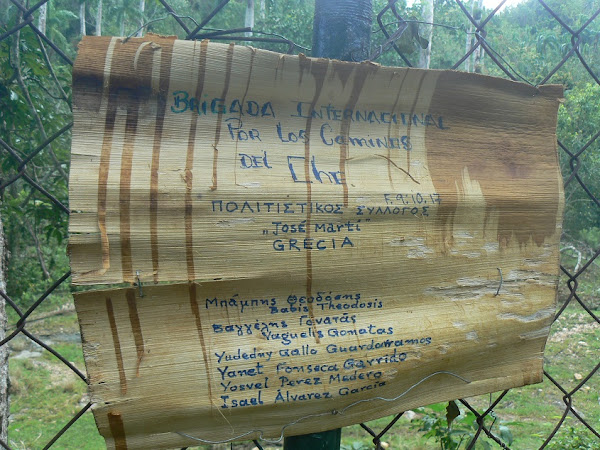 BRIGADA INTERNACIONAL
Por Los Caminos
DEL Che.
F. 9.10.17
ΠΟΛΙΤΙΣΤΙΚΟΣ ΣΥΛΛΟΓΟΣ
"José Martí"
GRECIA
Μπάμπης Θεοδόσης
Babis Theodosis
Βαγγέλης Γονατάς
Vaguelis Gonatas
Yudedny Gallo Guardarramos
Yanet Fonseca Garrido
Yosvel Perez Medero
Isael Alvarez García